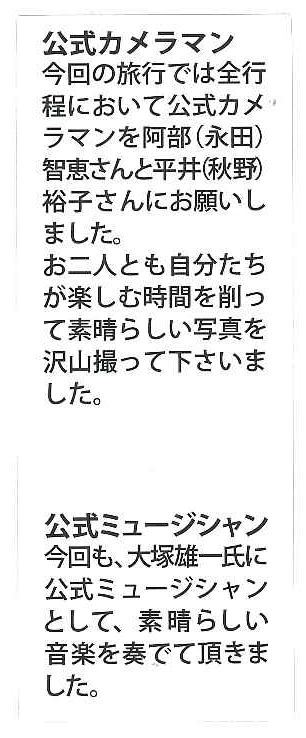 公式カメラマン
今回の旅行では全行
程において公式カメ
ラマンを阿部（永田）
智恵さんと平井(秋野)
裕子さんにお願いし
ました。
お二人とも自分たち
が楽しむ時間を削っ
て素晴らしい写真を
沢山撮って下さいま
した。
公式ミュージシャン
今回も、大塚雄一氏に
公式ミュージシャン
として、素晴らしい
音楽を奏でて頂きま
した。